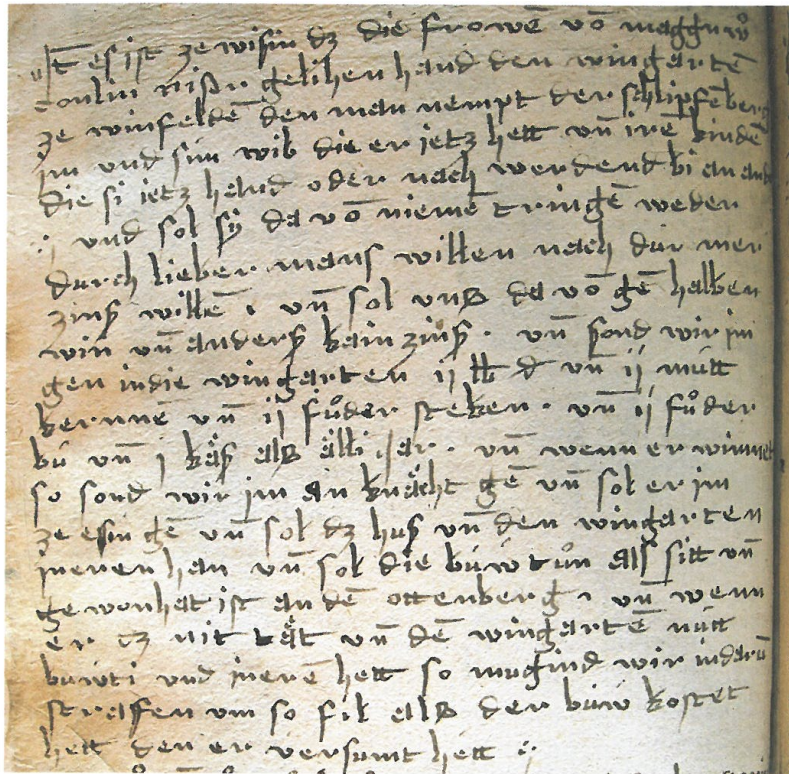 It es ist ze wisin dz die frowē vō maggnẘ
conlin nißr gelihen hand den wingartē
ze winfeldē den man nempt der schlipfēberg
im vnd sim wib die er ietz hett vn̄ irē kindē
die si ietz hand oder nach werdend bi an and
vnd sol sÿ da vō niemē tringē weder
durch lieber mans willen nach dur mer
zinß willē . vn̄ sol vns da vō gē halben
win vn̄ anderß kain zinß . vn̄ sond wir im
gen in die wingarten ij lb d vn̄ ij mütt
kernnē vn̄ ij fůder steken . vn̄ ij fůder
bú vn̄ j käß als älli jar . vn̄ wenn er wimnet
so sond wir im än knächt gē vn̄ sol er im
ze esin gē vn̄ sol dz huß vn̄ den wingarten
in eren han vn̄ sol die búw tůn als sitt vn̄
gewonhat ist an dē ottenberg . vn̄ wenn
er cz nit tät vn̄ dē wingartē nütt
búwti vnd in erē hett so mugind wir in darū
strafen vm so fil als der búw kostet
hett den er versumt hett